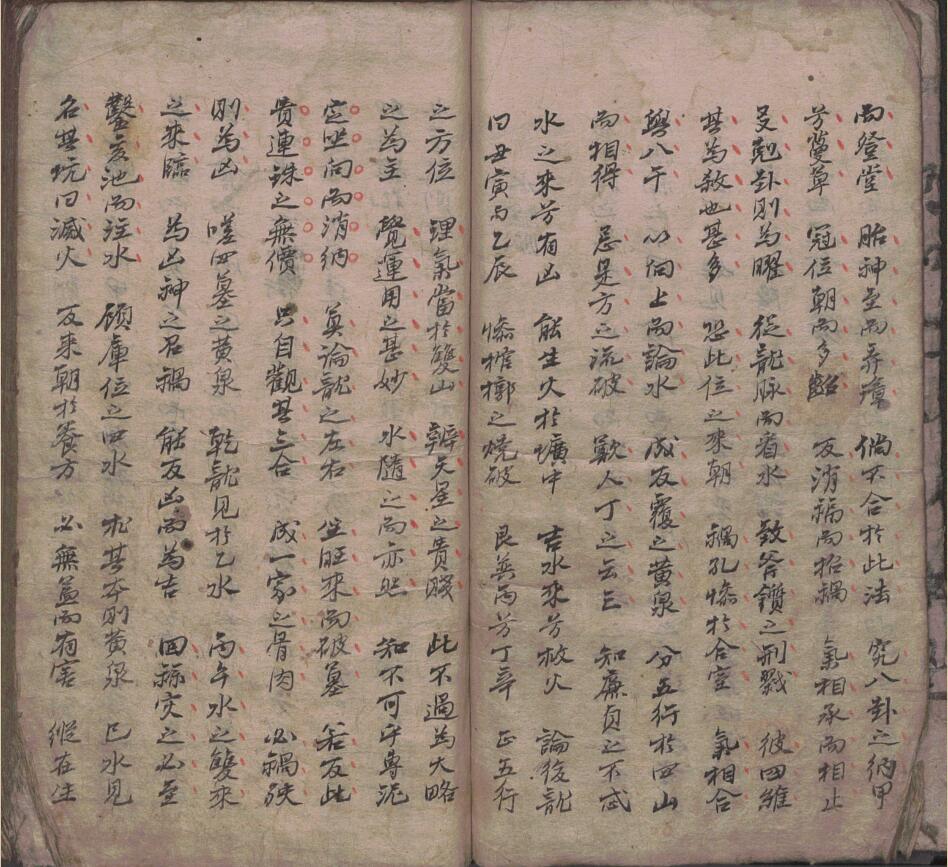 而登堂 胎神至而弄璋 倘不合於此法 究八卦之納甲
芳蔓草 冠位朝而多齠 反消福而招禍 氣相承而相止
爻剋卦則為曜 從龍脉而看水 致斧鑕之刑戮 彼四維
其為殺也甚多 忌此位之來朝 禍孔慘於合室 氣相合
與八干 以向上而論水 成反覆之黃泉 分五行於四山
而相得 忌是方之流破 歎人丁之云亡 知廉貞之不忒
水之來芳有凶 能生火於壙中 吉水來芳救火 論後龍
曰丑寅與乙辰 慘棺槨之燒破 艮巽丙芳丁辛 正五行
之方位 理氣當於雙山 辨天星之貴賤 此不過為大略
之為主 覺運用之甚妙 水隨之而亦然 知不可乎專泥
定坐向而消納 莫論龍之左右 坐旺來而破墓 若反此
貴連珠之無價 只自觀其三合 成一家之骨肉 必禍殃
則為凶 嗟四墓之黃泉 乾龍見於乙水 丙午水之雙來
之來臨 為凶神之召禍 能反凶而為吉 回祿灾之必至
鑿灰池而注水 頋庫位之四水 尤其夲則黃泉 巳水見
名其坑曰滅火 反來朝於養方 必無益而有害 縱在生